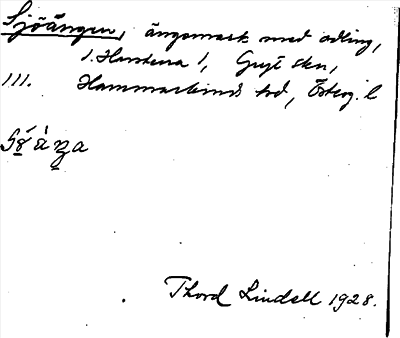 Sjöängen, ängsmark med odling,
1. Hustera 1, Gryt skn,
111. Hammarkinds hd, Östeg. l
Thord Lindell 1928.